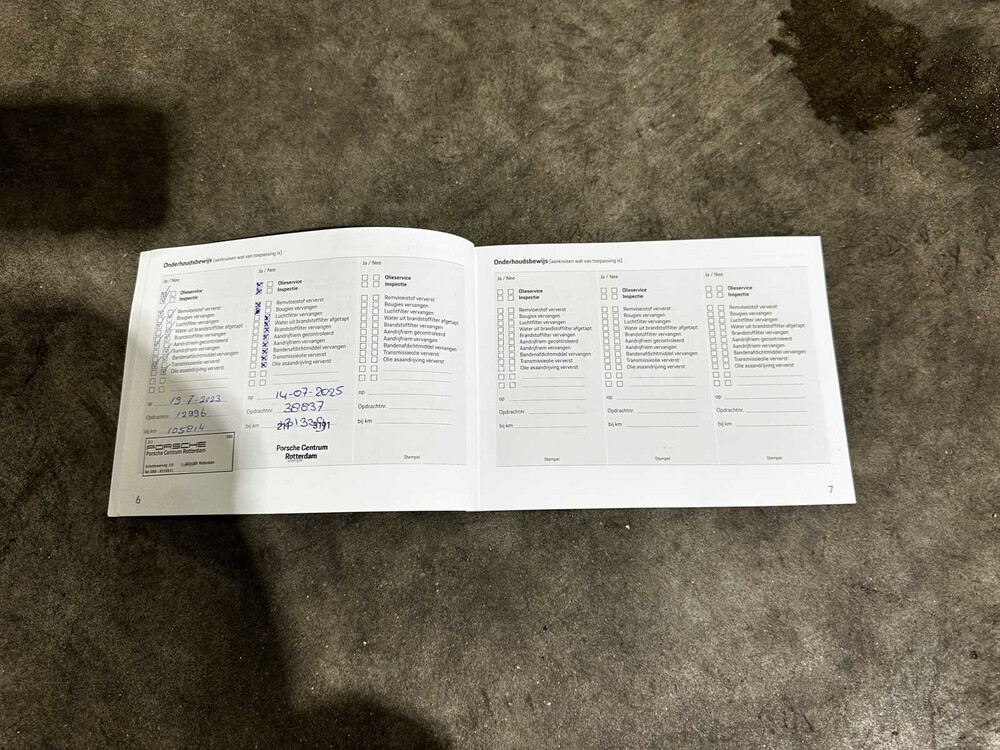 Onderhoudsbewijs (aankruisen wat van toepassing is)
Ja / Nee
Olieservice
Inspectie
Remvloeistof ververst
Bougies vervangen
Luchtfilter vervangen
Water uit brandstoffilter afgetapt
Brandstoffilter vervangen
Aandrijfriem gecontroleerd
Aandrijfriem vervangen
Bandenafdichtmiddel vervangen
Transmissieolie ververst
Olie asaandrijving ververst
op 19-7-2023
Opdrachtnr. 12996
bij km 105814
PORSCHE
Porsche Centrum Rotterdam
6
Ja / Nee
Olieservice
Inspectie
Remvloeistof ververst
Bougies vervangen
Luchtfilter vervangen
Water uit brandstoffilter afgetapt
Brandstoffilter vervangen
Aandrijfriem gecontroleerd
Aandrijfriem vervangen
Bandenafdichtmiddel vervangen
Transmissieolie ververst
Olie asaandrijving ververst
op 14-07-2025
Opdrachtnr. 38837
bij km
Porsche Centrum
Rotterdam
Stempel
Ja / Nee
Olieservice
Inspectie
Remvloeistof ververst
Bougies vervangen
Luchtfilter vervangen
Water uit brandstoffilter afgetapt
Brandstoffilter vervangen
Aandrijfriem gecontroleerd
Aandrijfriem vervangen
Bandenafdichtmiddel vervangen
Transmissieolie ververst
Olie asaandrijving ververst
op
Opdrachtnr.
bij km
Stempel
Onderhoudsbewijs (aankruisen wat van toepassing is)
Ja / Nee
Olieservice
Inspectie
Remvloeistof ververst
Bougies vervangen
Luchtfilter vervangen
Water uit brandstoffilter afgetapt
Brandstoffilter vervangen
Aandrijfriem gecontroleerd
Aandrijfriem vervangen
Bandenafdichtmiddel vervangen
Transmissieolie ververst
Olie asaandrijving ververst
op
Opdrachtnr.
bij km
Stempel
Ja / Nee
Olieservice
Inspectie
Remvloeistof ververst
Bougies vervangen
Luchtfilter vervangen
Water uit brandstoffilter afgetapt
Brandstoffilter vervangen
Aandrijfriem gecontroleerd
Aandrijfriem vervangen
Bandenafdichtmiddel vervangen
Transmissieolie ververst
Olie asaandrijving ververst
op
Opdrachtnr.
bij km
Stempel
Ja / Nee
Olieservice
Inspectie
Remvloeistof ververst
Bougies vervangen
Luchtfilter vervangen
Water uit brandstoffilter afgetapt
Brandstoffilter vervangen
Aandrijfriem gecontroleerd
Aandrijfriem vervangen
Bandenafdichtmiddel vervangen
Transmissieolie ververst
Olie asaandrijving ververst
op
Opdrachtnr.
bij km
Stempel
7